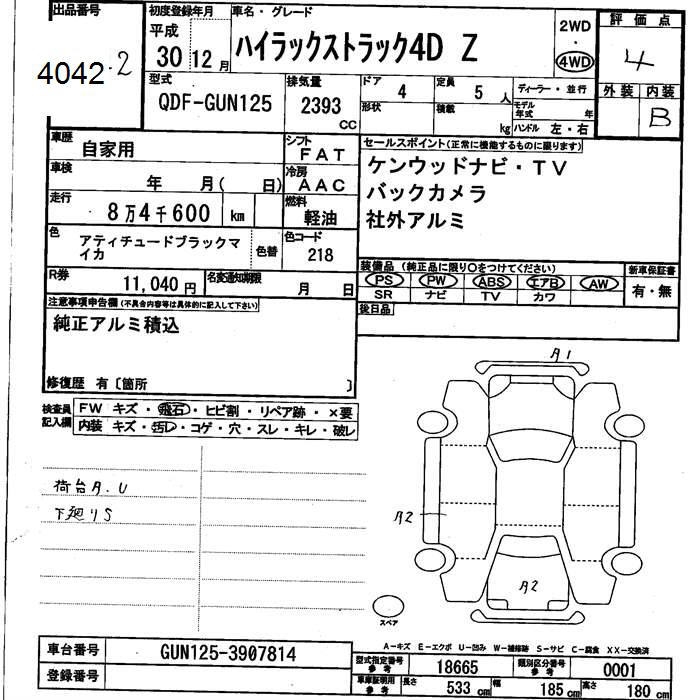 出品番号 初度登録年月 車名・グレード 評価点
4042 2 平成 30 12月 ハイラックストラック4D Z 2WD 4WD 4
型式 排気量 ドア 4 定員 5人 ディーラー・並行 外装 内装
QDF-GUN125 2393 CC 形状 積載 kg モデル年式 年 B
ハンドル 左・右
車歴 自家用 シフト FAT セールスポイント(正常に機能するものに限ります)
車検 年 月( 日) 冷房 AAC ケンウッドナビ・TV
走行 8万4千600 km 燃料 軽油 バックカメラ
社外アルミ
色 アティチュードブラックマイカ 色替 色コード 218
装備品(純正品に限り○をつけてください) 新車保証書
R券 11,040円 名変通知期限 月 日 PS PW ABS エアB AW 有・無
SR ナビ TV カワ
注意事項申告欄(不具合内容等は具体的に記入して下さい) 後日品
純正アルミ積込
修復歴 有〔箇所 〕
検査員記入欄 FW キズ・飛石・ヒビ割・リペア跡・×要
内装 キズ・汚レ・コゲ・穴・スレ・キレ・破レ
A1
荷台A.U
下廻りS
A2
A2
スペア
A−キズ E−エクボ U−凹み W−補修跡 S−サビ C−腐食 XX−交換済
車台番号 GUN125-3907814 型式指定番号 参考 18665 類別区分番号 参考 0001
登録番号 車庫証明用 参考 長さ 533cm 幅 185cm 高さ 180cm